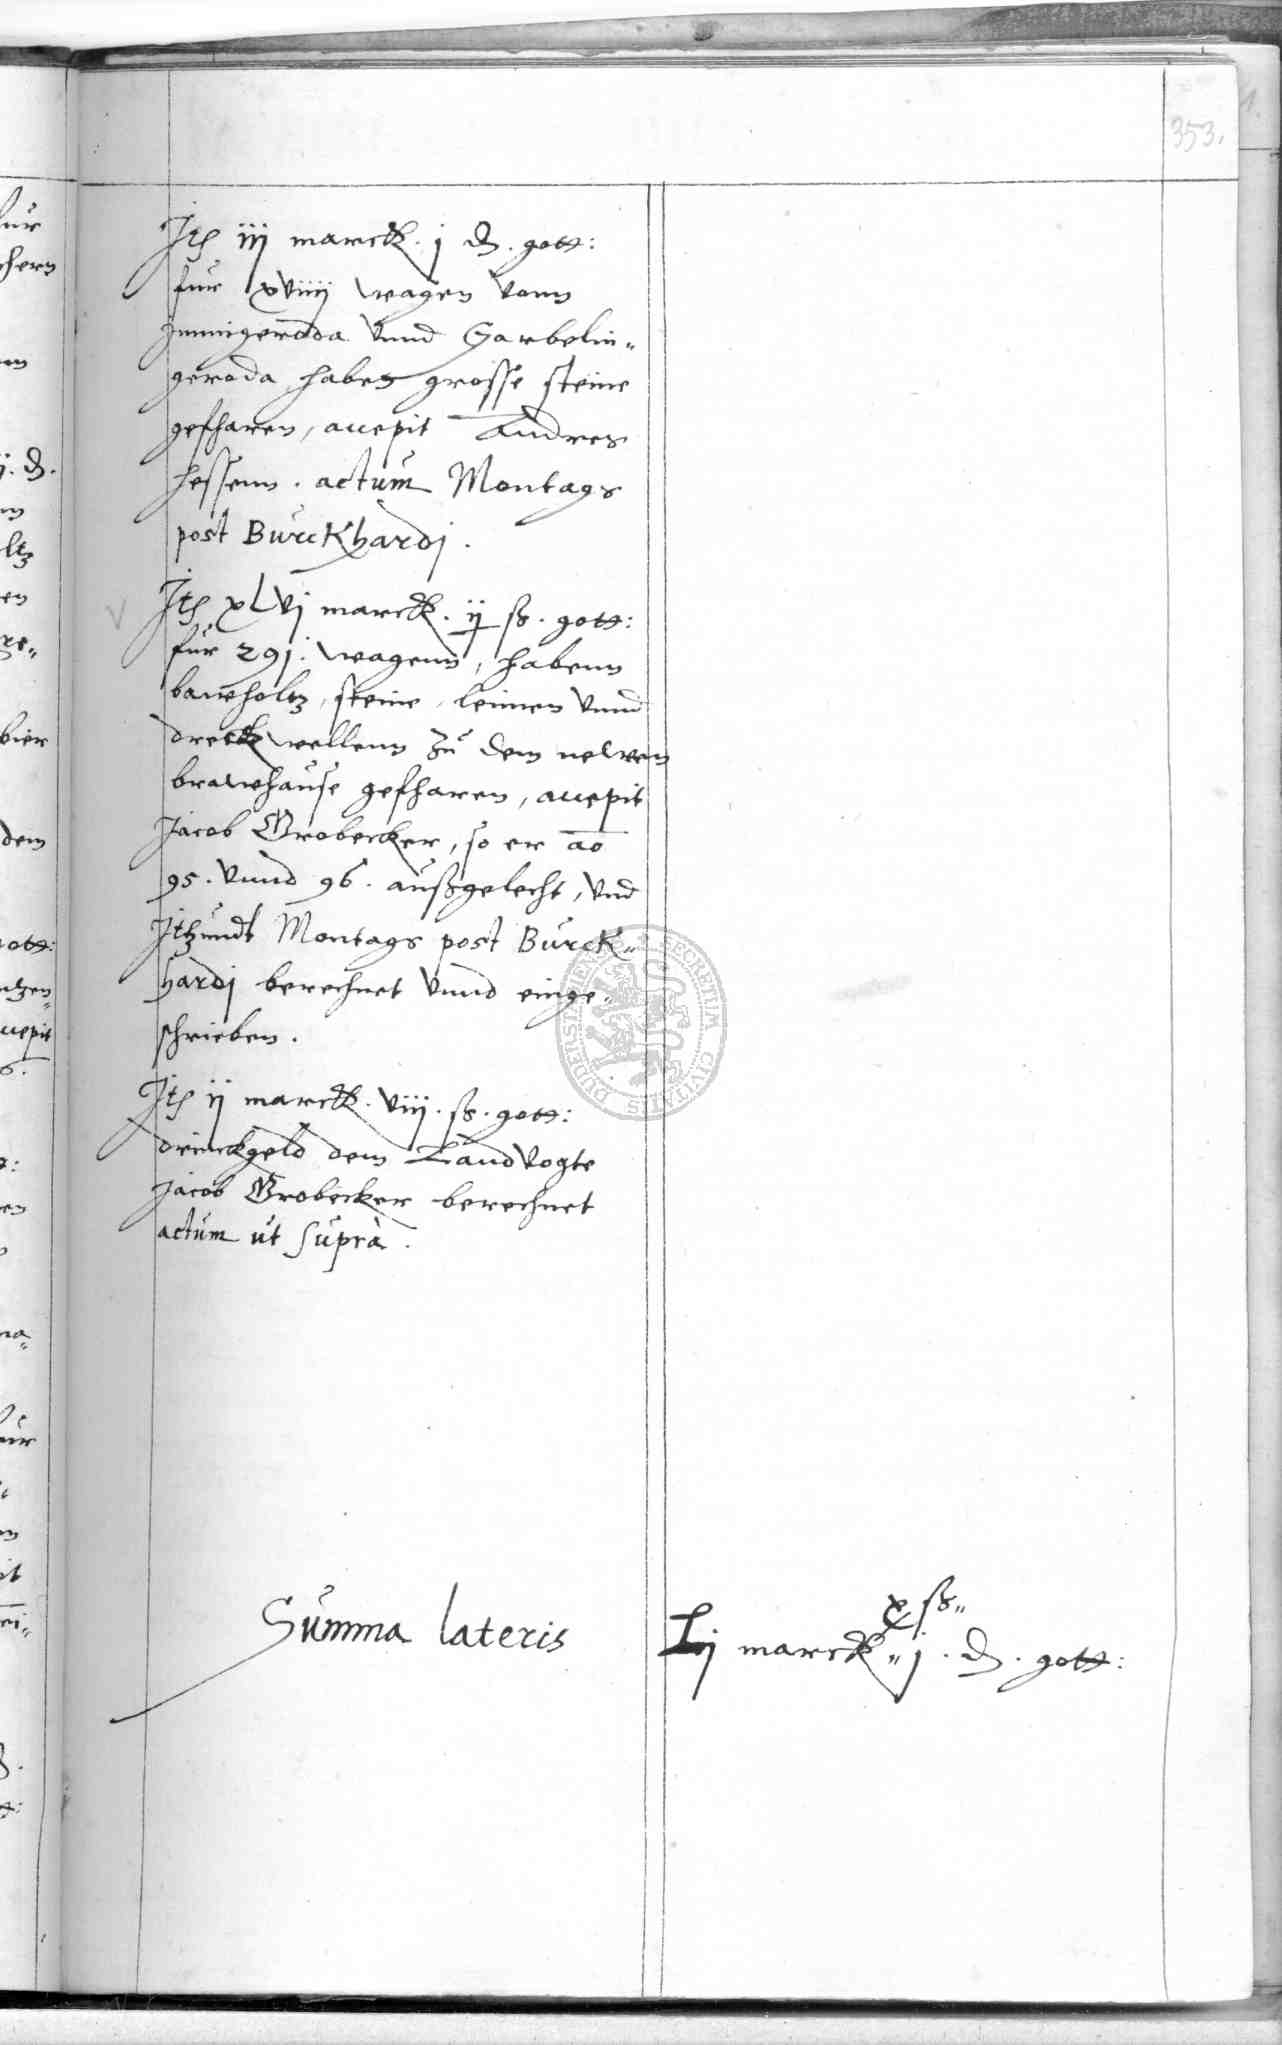 353.
Jtē iij marck. j ₰. gott:
fur xviiij wagen vonn
Jmmigeroda vnnd Garbelin„
geroda haben grosse steine
gefharen, accepit Andres
hessenn. actum Montags
post Burckhardj.
Jtē xLvj marck. ij ß. gott:
fur 291. wagenn, habenn
bawholtz, steine, leimen vnnd
dreckwellenn zu dem newen
brawhause gefharen, accepit
Jacob Grobecker, so er ao
95. vnnd 96. außgelecht, vnd
Jtzundt Montags post Burck„
hardj berechnet vnnd einge„
schrieben.
Jtē ij marck. viij. ß. gott:
drinckgeld dem Landvogte
Jacob Grobecker berechnet
actum ut supra.
x ß„
Summa lateris Lj marck„ j. ₰. gott:
SECRETUM CIVITATIS DUDERSTADENSIS